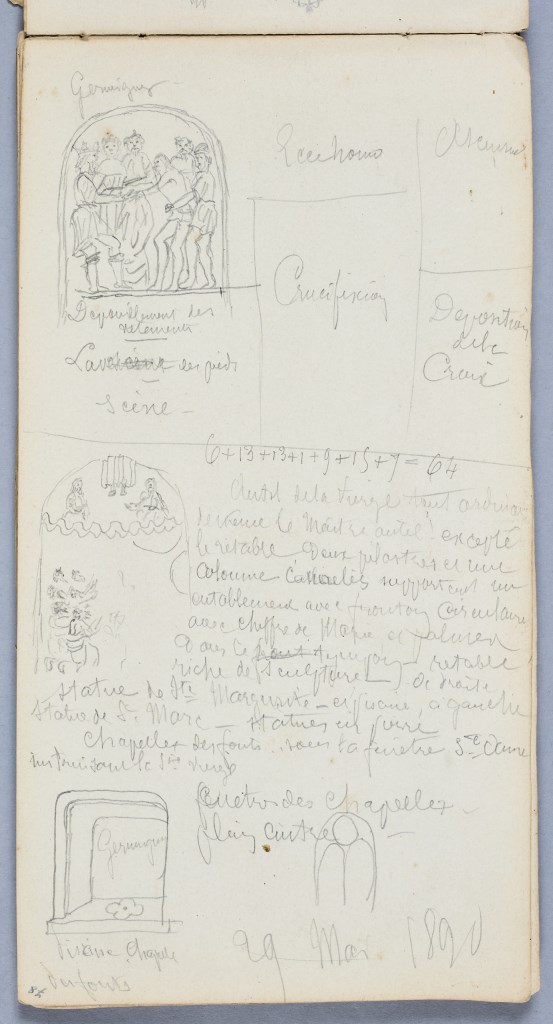 Germaigny
Ecce homo
Ascension
Crucifixion
Depouillement des
vetements
Lavement des pieds
Scène
Deposition
de la
Croix
6+13+13+1+9+15+7=64
Autel de la Vierge tout
comme le Maitre autel excepté
le retable Deux pilastres et une
colonne cannelés supportent un
entablement avec fronton circulaire
avec chiffre de Marie et palmes
Dans le tympan retable
riche de sculpture de droite
Statue de Ste Marguerite en pierre, à gauche
Statue de St Marc - statues en pierre
Chapelle des fonts sous la fenetre Ste Anne
instruisant la Ste vierge
fenetres des chapelles
plein cintre
Germaigny
Piscine Chapelle
des fonts
29 Mai 1890